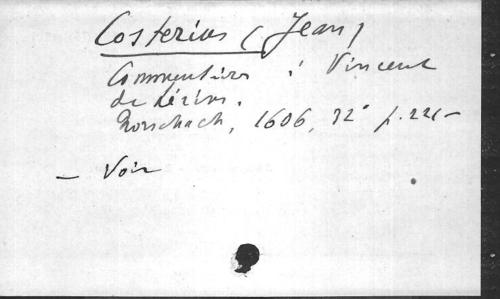 Costerius (Jean)
Commentaires : Vincent
de Lérins.
Rorschach, 1606, 32° p. 221-
— Voir